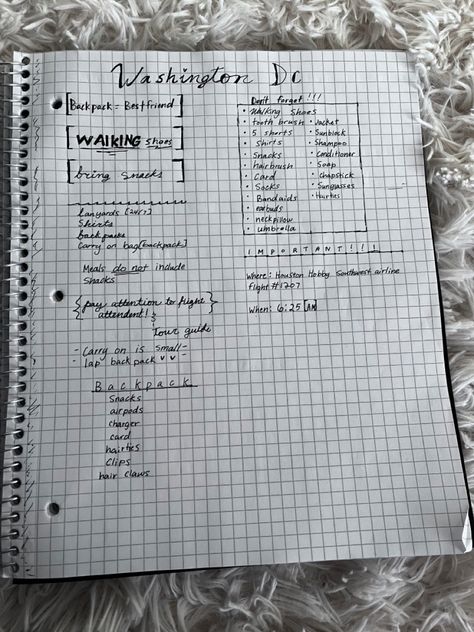 Washington Dc
[Backpack = Bestfriend]
[WALKING shoes]
[bring snacks]
lanyards [24/7]
Shirts
back packs
Carry on bag [backpack]
Meals do not include
Snacks
{pay attention to flight
attendent! &
Tour guide}
- Carry on is small -
- lap back pack v v
Backpack
Snacks
airpods
charger
card
hairties
Clips
hair claws
Don't forget!!!
• Walking shoes
• tooth brush
• 5 shorts
• Shirts
• Snacks
• hairbrush
• Card
• Socks
• Bandaids
• earbuds
• neck pillow
• umbrella
• Jacket
• Sunblock
• Shampoo
• Conditioner
• Soap
• Chapstick
• Sunglasses
IMPORTANT!!!
Where: Houston Hobby Southwest airline
flight #1207
When: 6:25 [AM]